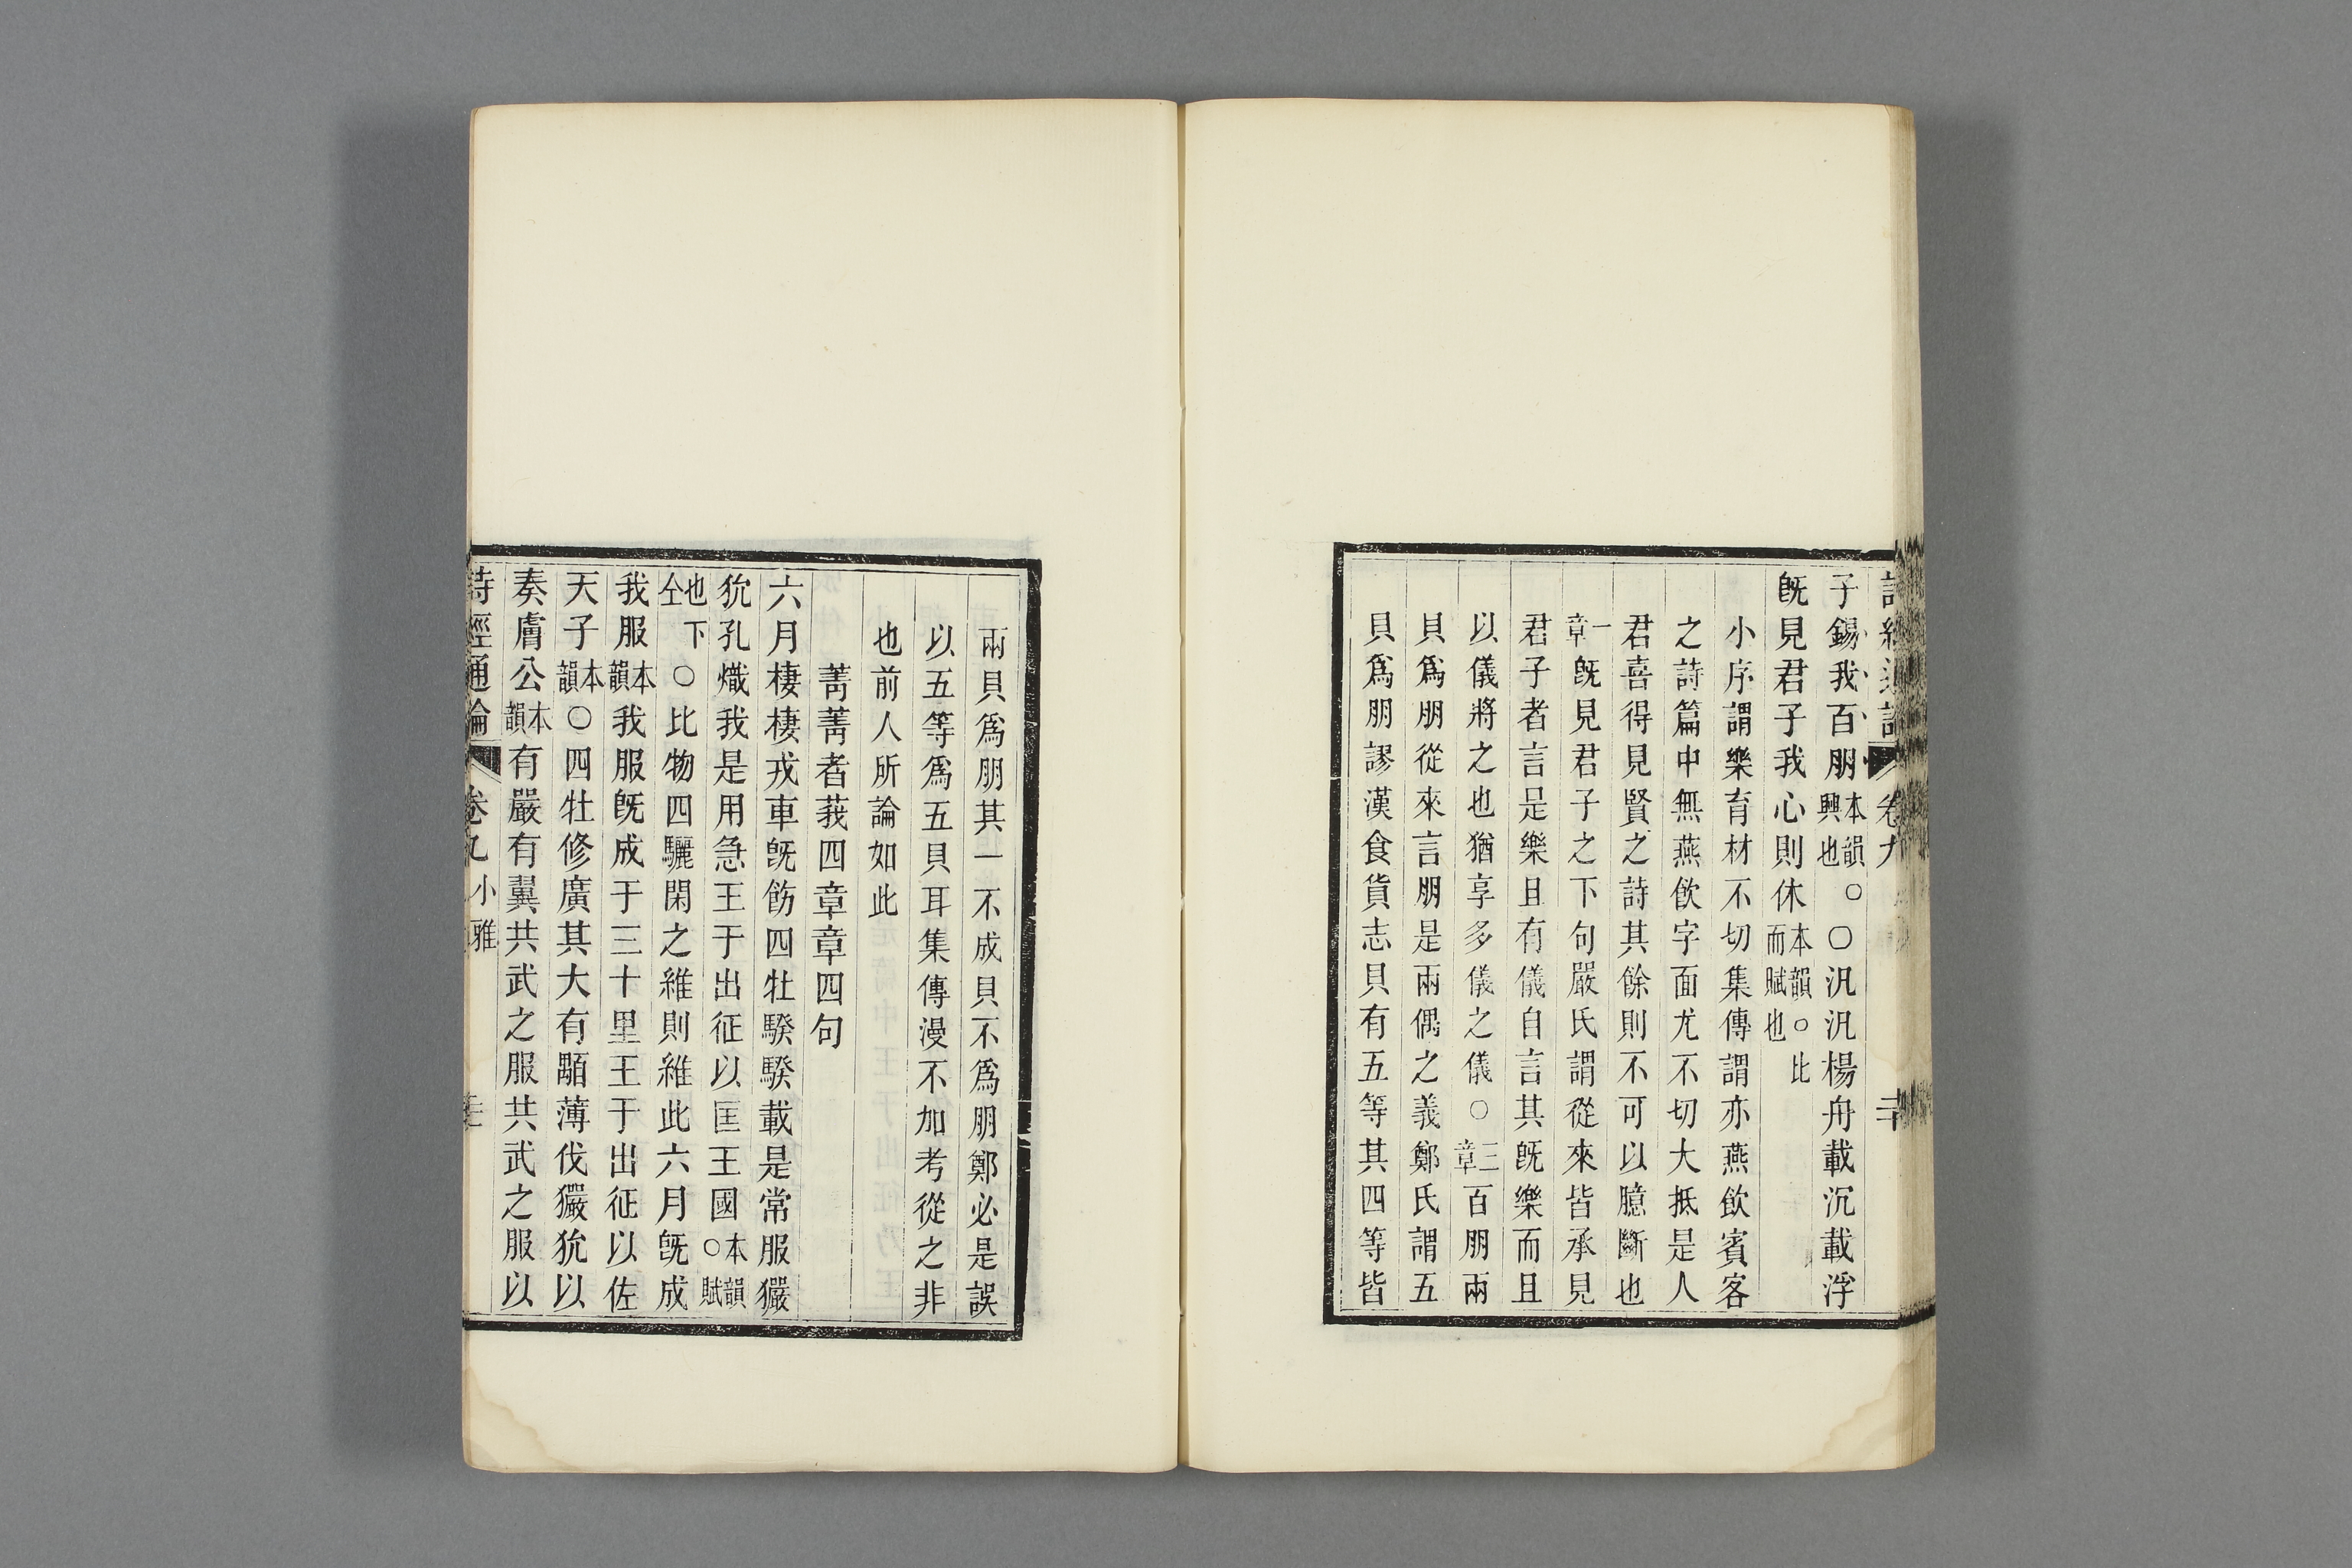 子錫我百朋本韻。興也〇汎汎楊舟載沉載浮
旣見君子我心則休本韻。比而賦也
小序謂樂育材不切集傳謂亦燕飲賓客
之詩篇中無燕飲字面尤不切大抵是人
君喜得見賢之詩其餘則不可以臆斷也
一章旣見君子之下句嚴氏謂從來皆承見
君子者言是樂且有儀自言其旣樂而且
以儀將之也猶享多儀之儀〇三章百朋兩
貝爲朋從來言朋是兩偶之義鄭氏謂五
貝爲朋謬漢食貨志貝有五等其四等皆
兩貝爲朋其一不成貝不爲朋鄭必是誤
以五等爲五貝耳集傳漫不加考從之非
也前人所論如此
菁菁者莪四章章四句
六月棲棲戎車旣飭四牡騤騤載是常服玁
狁孔熾我是用急王于出征以匡王國本韻〇賦
也下仝〇比物四驪閑之維則維此六月旣成
我服本韻我服旣成于三十里王于出征以佐
天子本韻〇四牡修廣其大有顒薄伐玁狁以
奏膚公本韻有嚴有翼共武之服共武之服以
詩經通論 卷九 小雅